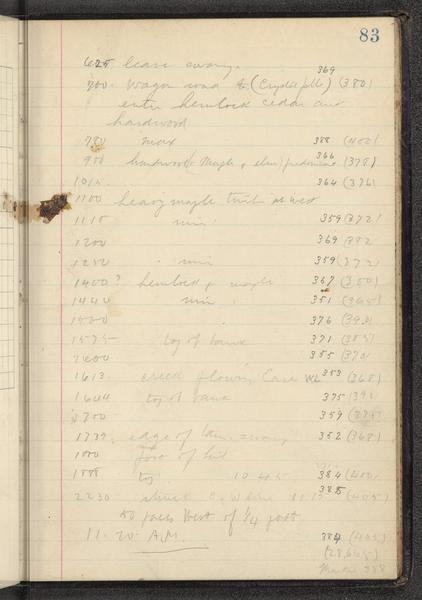 83
625 leave swamp 369
700 wagon road to (Crystal falls) (380)
enter hemlock cedar and
hardwood
780 max 388 (400)
900 hardwood (Maple & elm) predominate 366 (378)
1015 364 (376)
1100 heavy maple timb
1115 min 359 (372)
1200 369 (382
1250 min 359 (372)
1400? hemlock & maple 367 (380)
1440 min 351 (365)
376 (390)
1575 top of bank 371 (385)
1600 355 (370)
1613 creek flowing East WL 353 (368)
1644 top of bank 375 (391
1700 359 (375)
1739 edge of swamp 352 (368)
foot of hill
top 10 45 384 (400)
2230 struck 11.15 385 (405)
50 paces West of 1/4 post
11. 20. A.M. 384 (405)